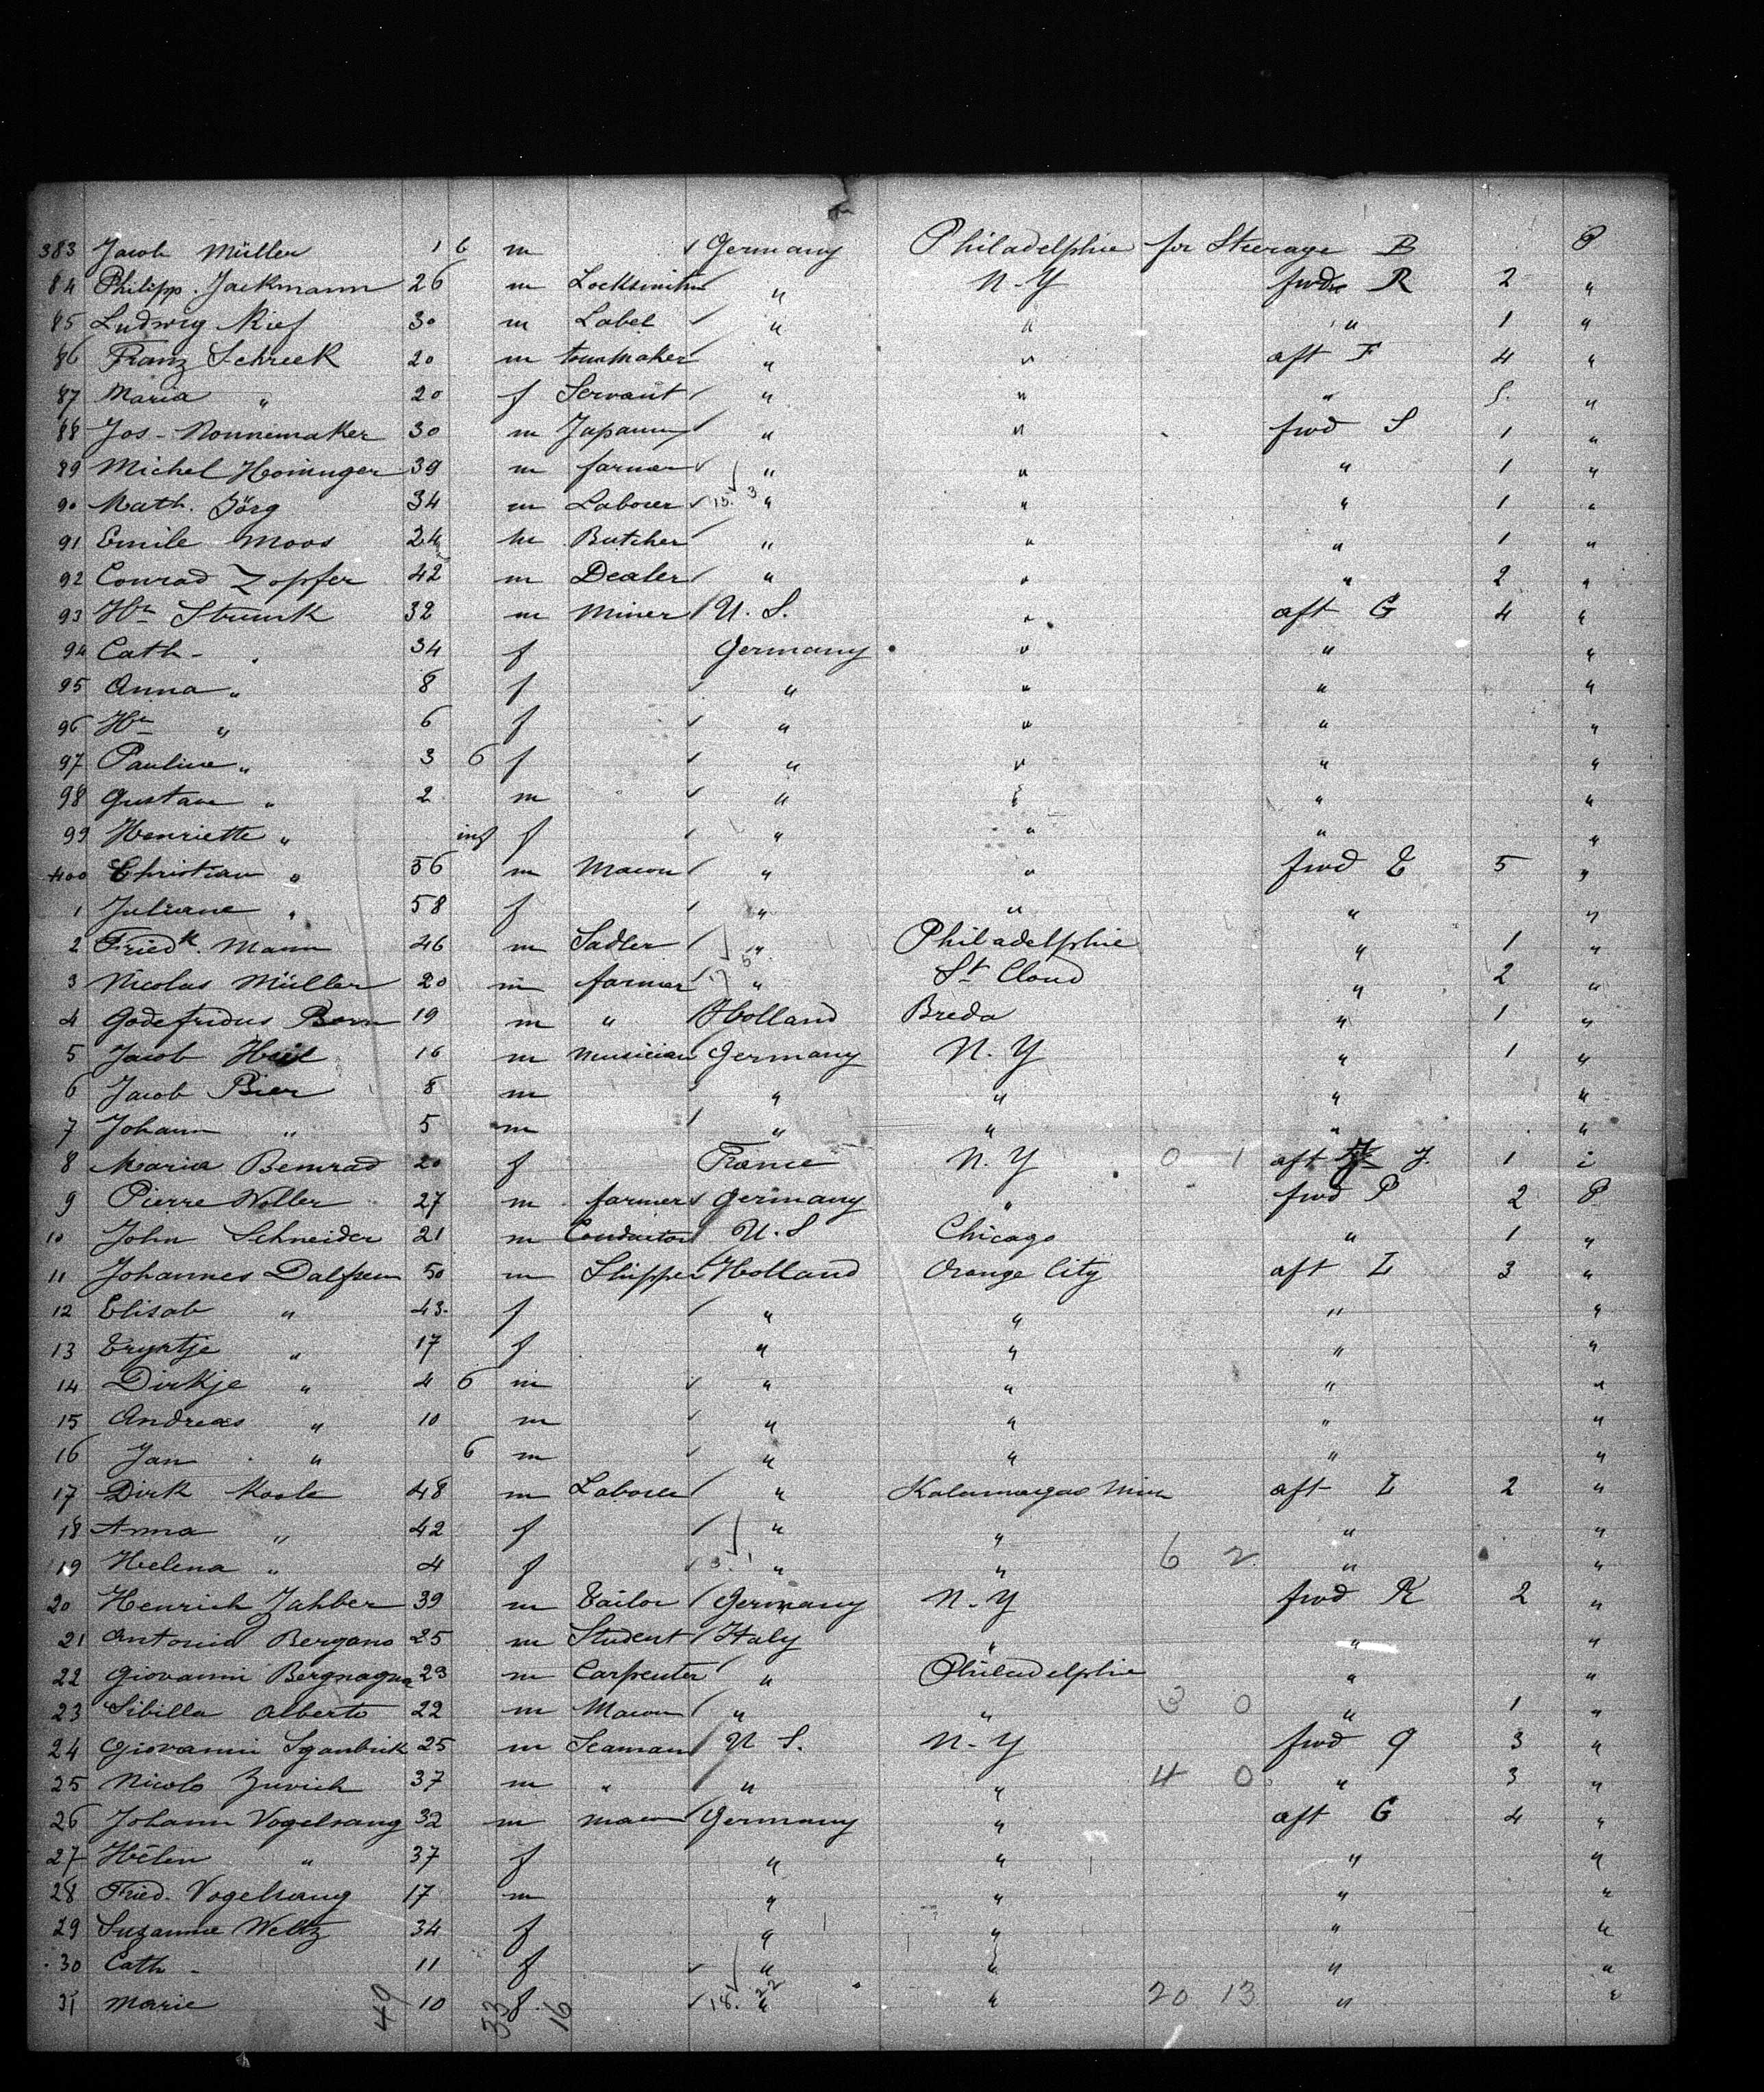 383 Jacob Müller 1 6 m Germany Philadelphie for Steerage B P
84 Philipp Jackmann 26 m Locksmith " N-Y fwd R 2 "
85 Ludwig Rief 30 m Label " " " 1 "
86 Franz Schreek 20 m " " aft F 4 "
87 Maria " 20 f Servant " " " "
88 Jos- Nonnemaker 30 m " " fwd S 1 "
89 Michel Honinger 39 m farmer " " " 1 "
90 Math. Jörg 34 m Laborer 15. 3 " " " 1 "
91 Emile Moos 24 m Butcher " " " 1 "
92 Conrad Zopfer 42 m Dealer " " " 2 "
93 Hn Strunk 32 m Miner U. S. " aft G 4 "
94 Cath - 34 f Germany " " "
95 Anna " 8 f " " " "
96 Hn " 6 f " " " "
97 Pauline " 3 6 f " " " "
98 Gustav " 2 m " " " "
99 Henriette " inf f " " " "
400 Christian " 56 m Macon " " fwd E 5 "
1 Juliane " 58 f " " " "
2 Friedk. Mann 46 m Sadler " Philadelphie " 1 "
3 Nicolas Müller 20 m farmer " St Cloud " 2 "
4 Godefridus 19 m " Holland Breda " 1 "
5 Jacob 16 m Musician Germany N. Y " 1 "
6 Jacob Bier 8 m " " " "
7 Johann " 5 m " " " "
8 Maria Bemrad 20 f France N. Y 0 1 aft J. 1 i
9 Pierre Noller 27 m farmer Germany " fwd P 2 P
10 John Schneider 21 m Conductor U. S Chicago " 1 "
11 Johannes Dalfsen 50 m Shipper Holland Orange City aft L 3 "
12 Elisab " 43 f " " " "
13 Eryntje " 17 f " " " "
14 Dirkje " 4 6 m " " " "
15 Andreas " 10 m " " " "
16 Jan " 6 m " " " "
17 Dirk Koole 48 m Laborer " Kalamargas Mich aft L 2 "
18 Anna " 42 f " " " "
19 Helena " 4 f 3. 1 " " 6 2 " "
20 Henrich Zahber 39 m Tailor Germany N-Y fwd R 2 "
21 Antonio Bergano 25 m Student Italy " " "
22 Giovanni Bergnagna 23 m Carpenter " Philadelphie " "
23 Sibilla Alberto 22 m Macon " " 3 0 " 1 "
24 Giovanni Sganbrik 25 m Seaman U S. N-Y fwd 9 3 "
25 Nicolo Zuvich 37 m " " " 4 0 " 3 "
26 Johann Vogelsang 32 m macon Germany " aft G 4 "
27 Hélen " 37 f " " " "
28 Fried. Vogelsang 17 m " " " "
29 Suzanne Weltz 34 f " " " "
30 Cath - 11 f " " " "
31 Marie 10 f 18. 22 " " 20 13 " "
49 33 16